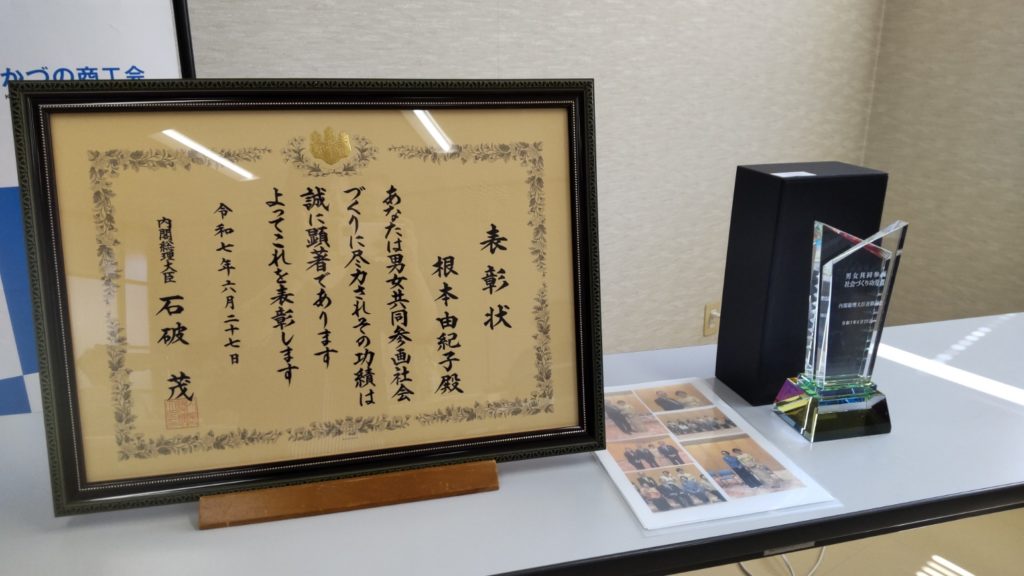 かづの商工会
表彰状
根本由紀子殿
あなたは男女共同参画社会
づくりに尽力されその功績は
誠に顕著であります
よってこれを表彰します
令和七年六月二十七日
内閣総理大臣 石破 茂
男女共同参画
社会づくり功労者
内閣総理大臣表彰